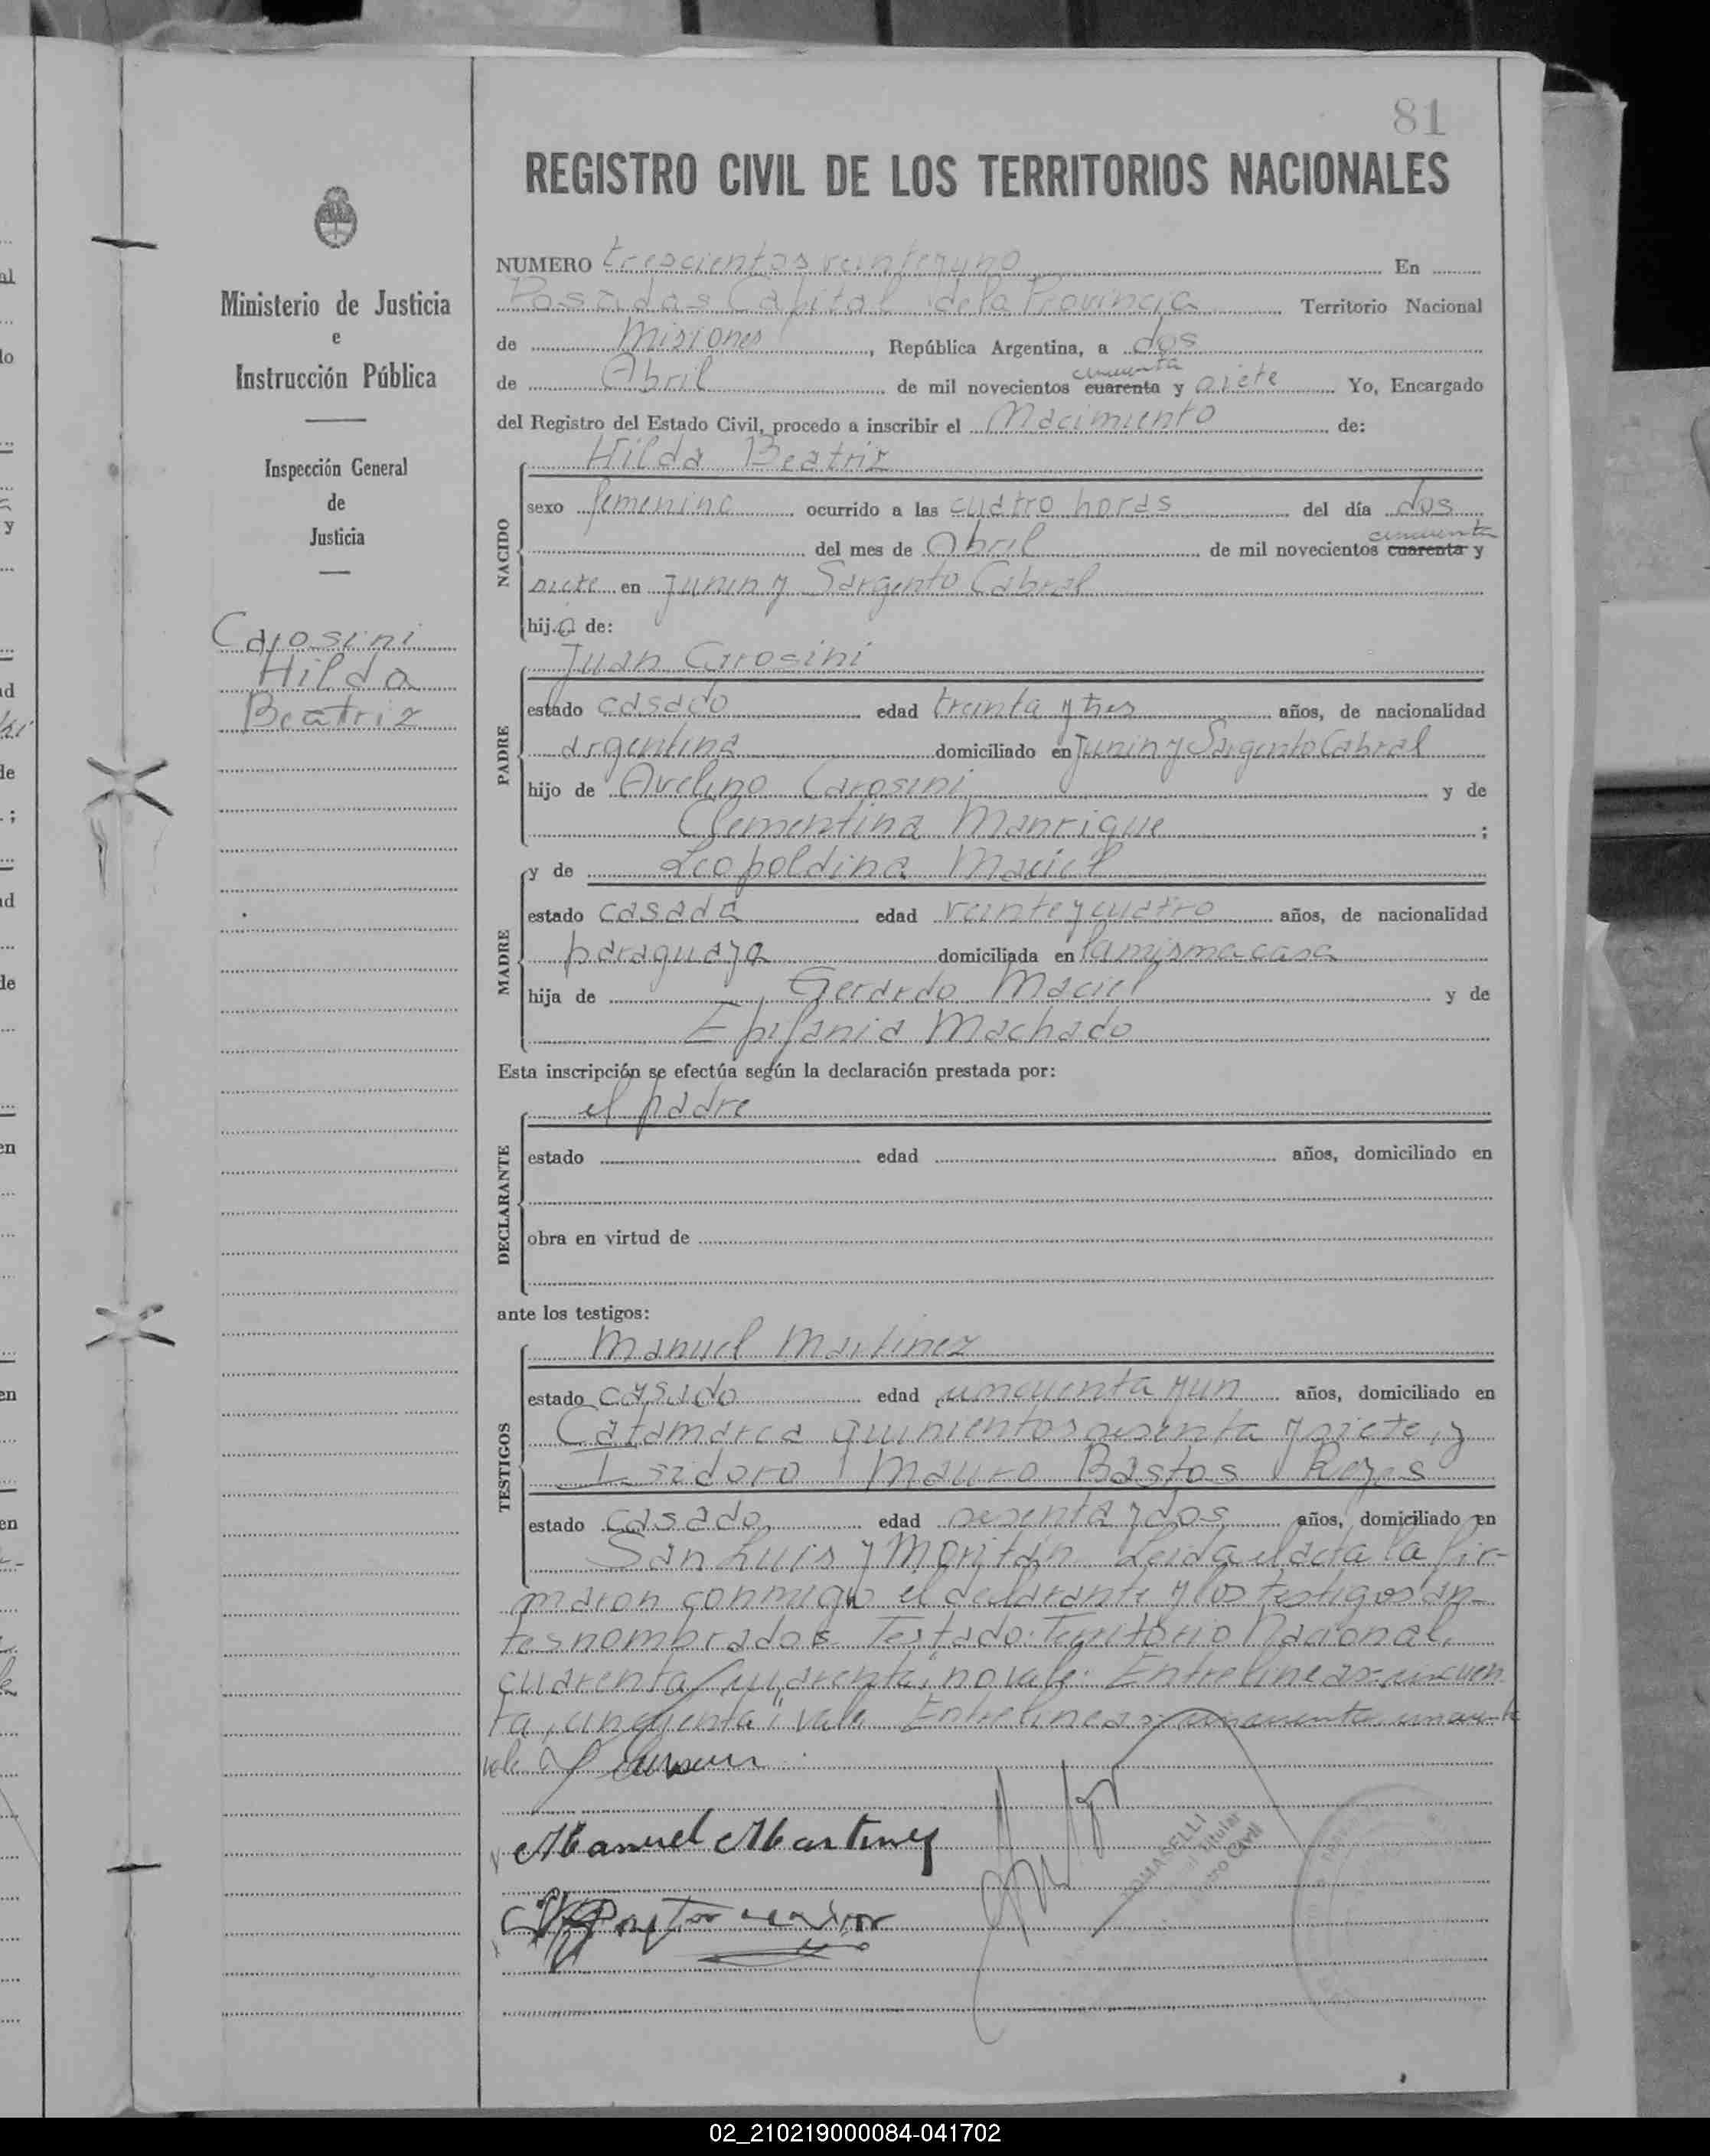 81
REGISTRO CIVIL DE LOS TERRITORIOS NACIONALES
Ministerio de Justicia
e
Instrucción Pública
Inspección General
de
Justicia
Carosini
Hilda
Beatriz
NUMERO trescientos veinteyuno En
Posadas Capital de la Provincia Territorio Nacional
de Misiones, República Argentina, a dos
cincuenta
de Abril de mil novecientos cuarenta y siete Yo, Encargado
del Registro del Estado Civil, procedo a inscribir el Nacimiento de:
Hilda Beatriz
NACIDO
sexo femenino ocurrido a las cuatro horas del día dos
cincuenta
del mes de Abril de mil novecientos cuarenta y
siete en Junin y Sargento Cabral
hija de:
Juan Carosini
PADRE
estado casado edad treinta y tres años, de nacionalidad
argentina domiciliado en Junin y Sargento Cabral
hijo de Avelino Carosini y de
Clementina Manrique;
y de Leopoldina Maciel
MADRE
estado casada edad veinte y cuatro años, de nacionalidad
paraguaya domiciliada en la misma casa
hija de Gerardo Maciel y de
Epifania Machado
Esta inscripción se efectúa según la declaración prestada por:
el padre
DECLARANTE
estado edad años, domiciliado en
obra en virtud de
ante los testigos:
Manuel Martinez
TESTIGOS
estado casado edad cincuenta y un años, domiciliado en
Catamarca quinientos y siete, y
Isidoro Mauro Bastos Reyes
estado casado edad sesenta y dos años, domiciliado en
San Luis y Leida el acta la fir-
maron conmigo el declarante y los testigos an-
tesnombrados. Testado: Territorio Nacional,
cuarenta, cuarenta, no vale. Entrelineas: cincuen
ta, cincuenta: vale. Entrelineas: cincuenta, cincuenta
vale
Manuel Martinez
TOMASELLI
Titular
Civil
02_210219000084-041702